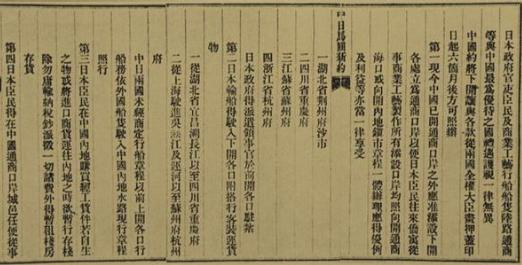 日本政府官吏臣民及商業工藝行船船隻陸路通商
等與中國最爲優待之國禮遇護視一律無異
中國約將下開讓與各款從兩國全權大臣畫押蓋印
日起六個月後方可照辦
第一現今中國已開通商口岸之外應准添設下開
各處立爲通商口岸以便日本臣民往來僑寓從
事商業工藝製作所有添設口岸均照向開通商
海口或向開內地鎭市章程一體辦理應得優例
及利益等亦當一律享受
中日馬關新約
一湖北省荆州府沙市
二四川省重慶府
三江蘇省蘇州府
四浙江省杭州府
日本政府得派遣領事官於前開各口駐紮
第二日本輪船得駛入下開各口附搭行客裝運貨
物
一從湖北省宜昌溯長江以至四川省重慶府
二從上海駛進吳淞江及運河以至蘇州府杭州
府
中日兩國未經商定行船章程以前上開各口行
船務依外國船隻駛入中國內地水路現行章程
照行
第三日本臣民在中國內地購買經工貨件若自生
之物或將進口商貨運往內地之時欲暫行存棧
除勿庸輸納稅鈔派徵一切諸費外得暫租棧房
存貨
第四日本臣民得在中國通商口岸城邑任便從事